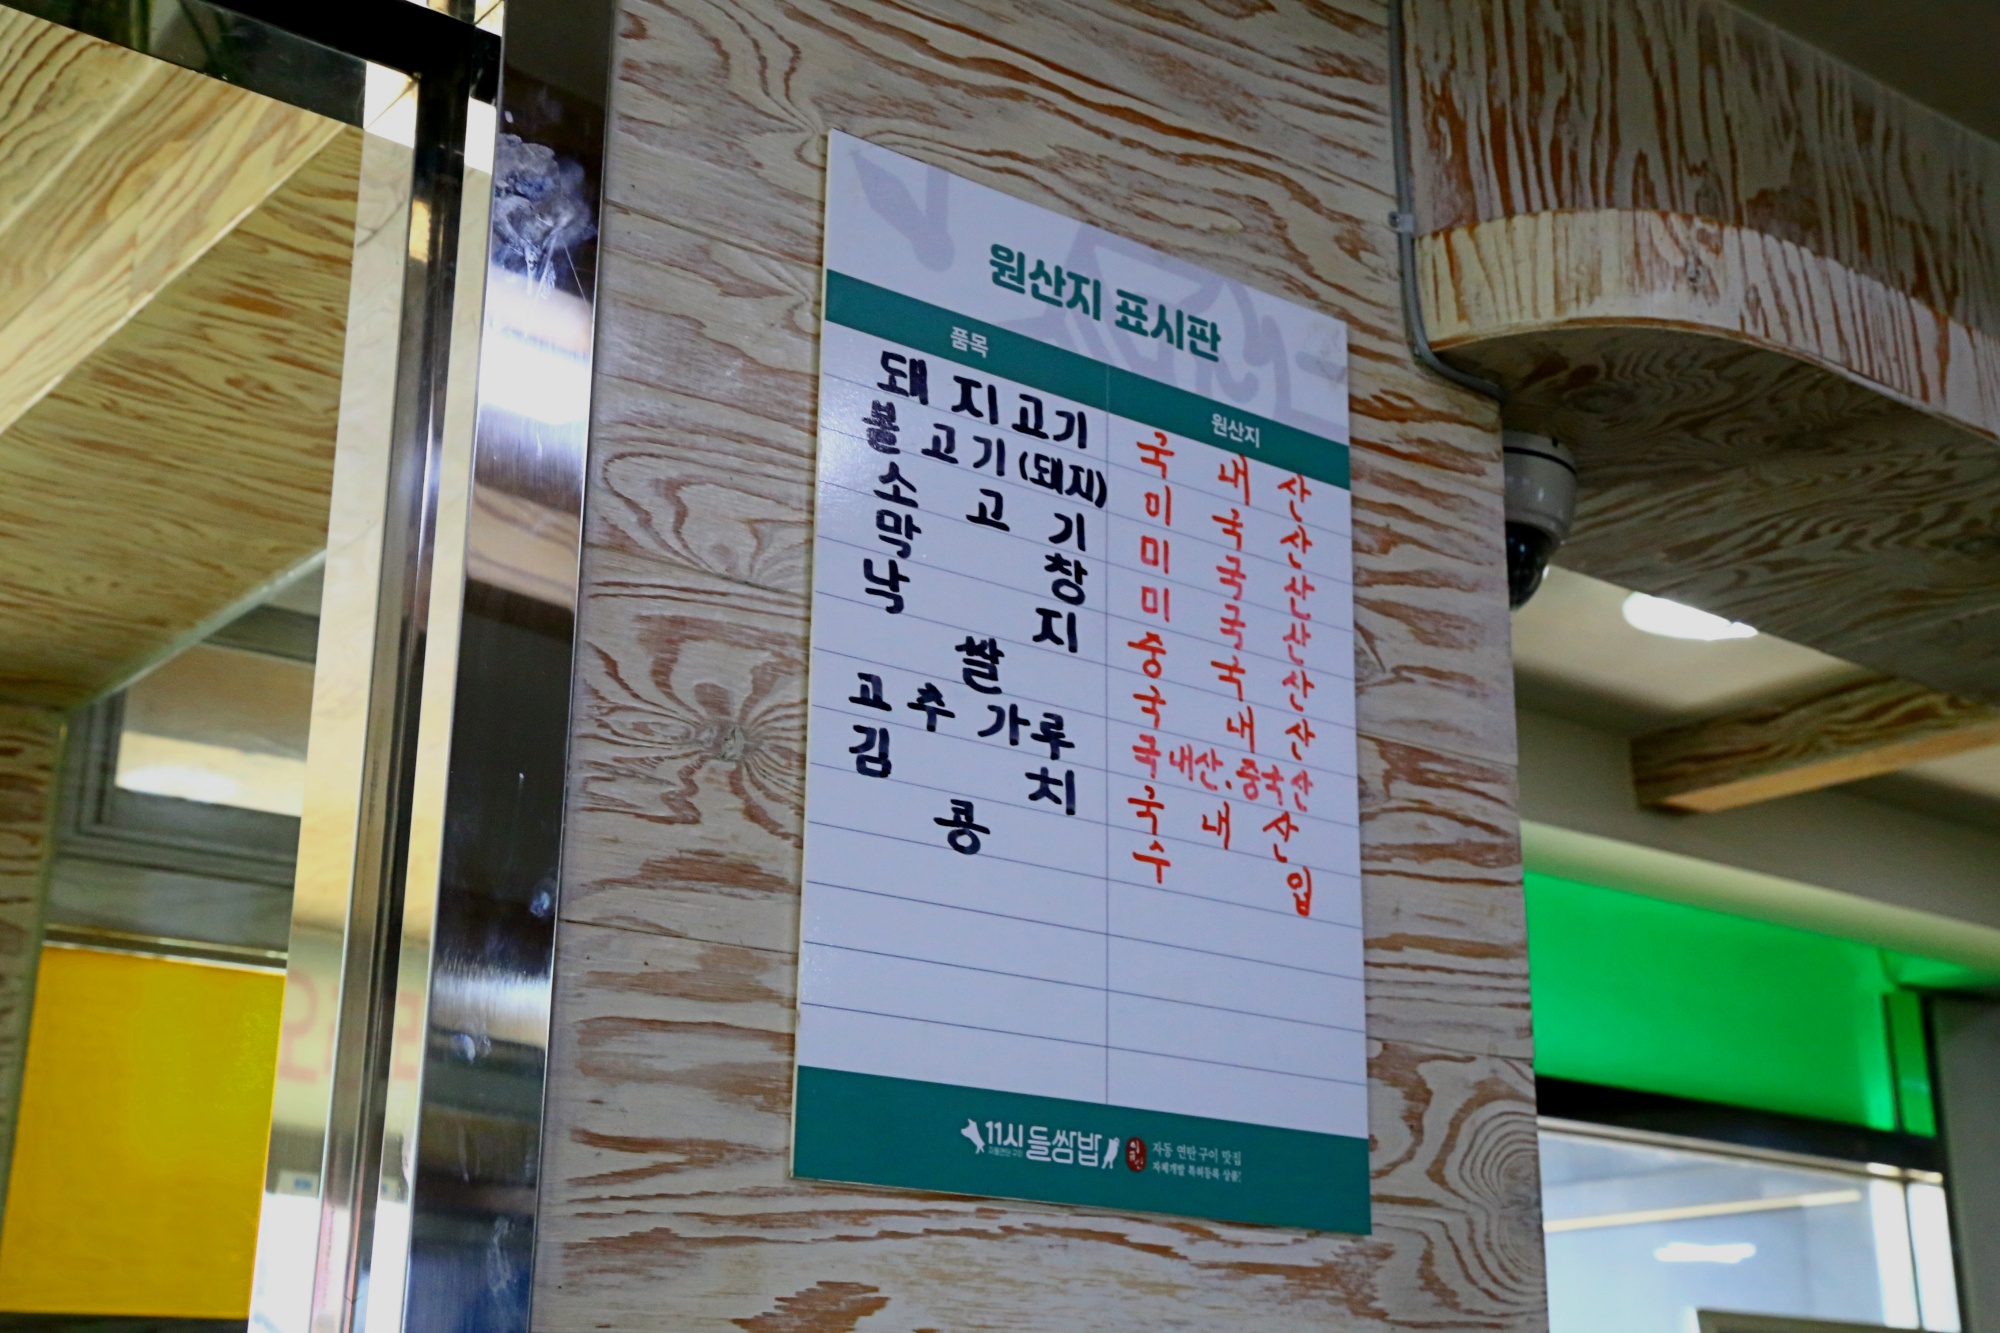 원산지 표시판
품목 원산지
돼지고기 국내산
불고기(돼지) 미국산
소고기 미국산
막창 미국산
낙지 중국산
쌀 국내산
고추가루 국내산.중국산
김치 국내산
콩 수입
11시 들쌈밥
자동 연탄 구이 맛집
자체개발 특허등록 상품!